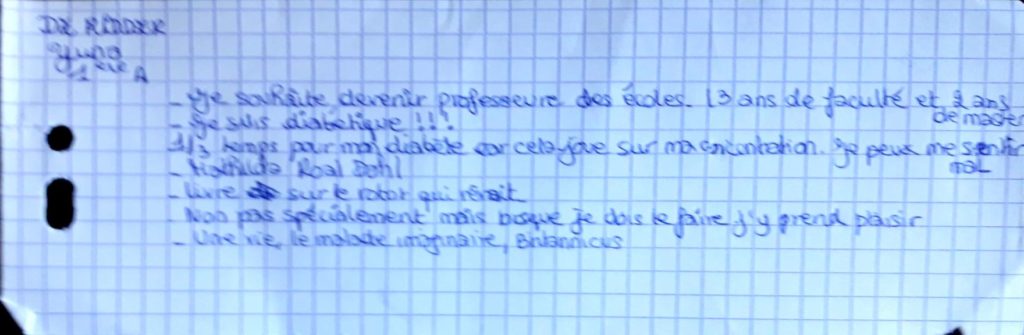 DE RIDDER
Yuna
1ère A
- Je souhaite devenir professeure des écoles. (3 ans de faculté et 2 ans
de master
- Je suis diabétique !!!
1/3 temps pour mon diabète car cela joue sur ma concentration. Je peux me sentir
mal
- Mathilda Roal Dahl
- Livre sur le robot qui rêvait
Non pas spécialement mais lorsque je dois le faire j'y prend plaisir
- Une vie, le malade imaginaire, Britannicus